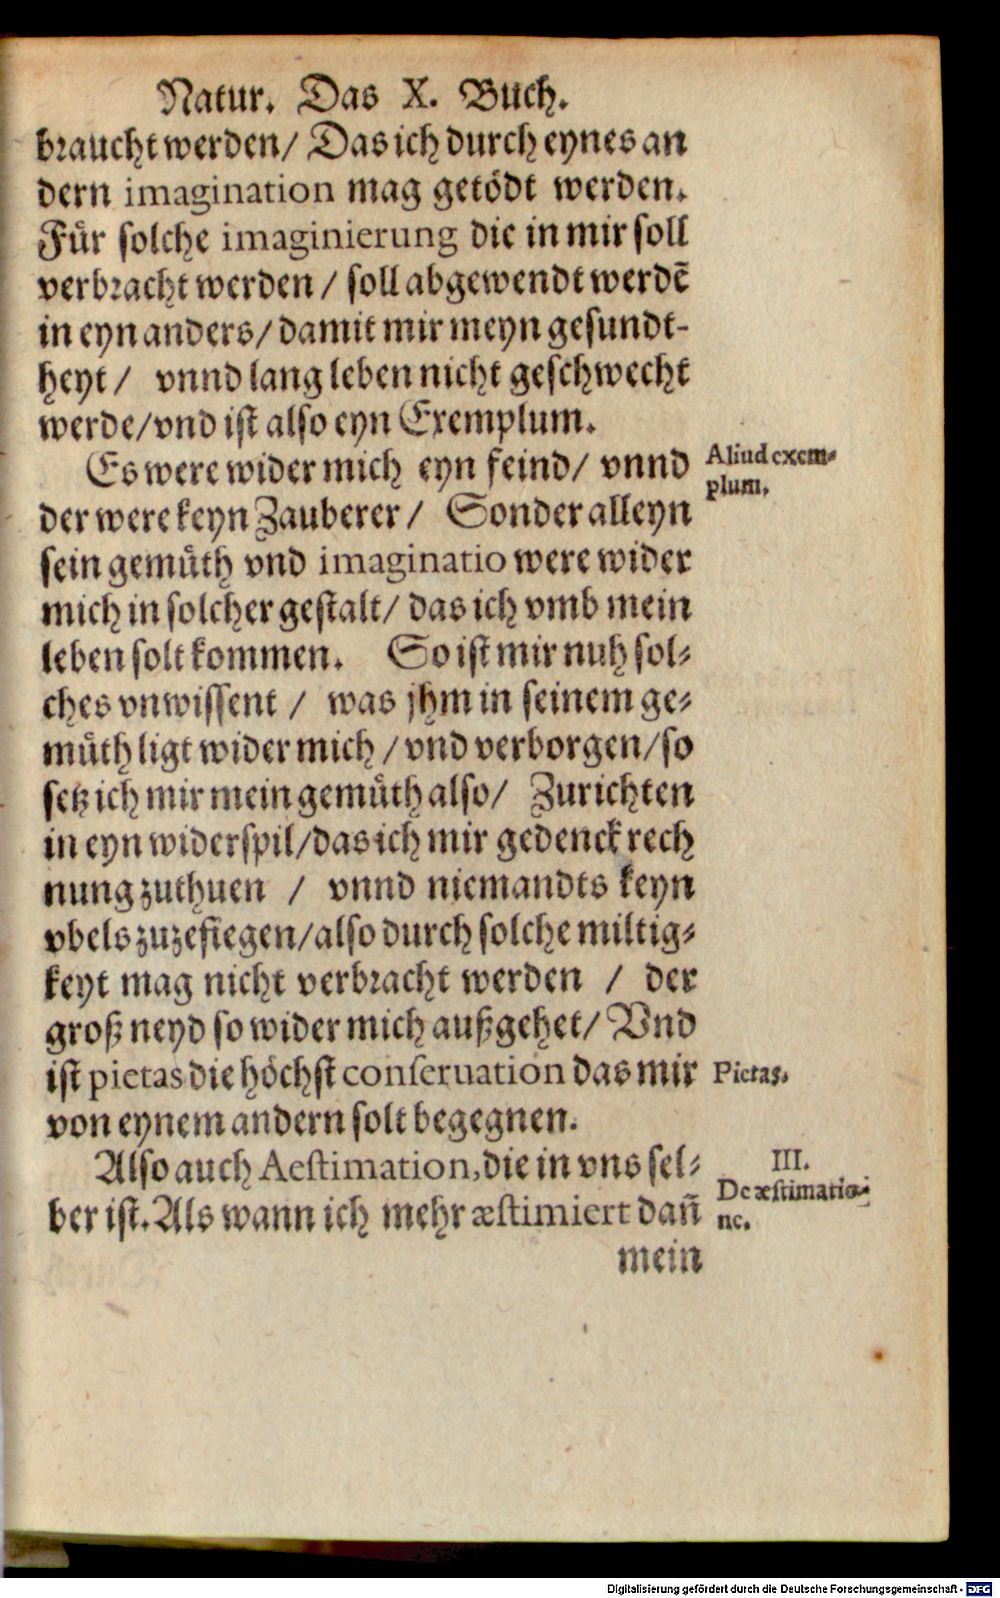 Natur. Das X. Buch.
braucht werden/ Das ich durch eynes an
dern imagination mag getödt werden.
Für solche imaginierung die in mir soll
verbracht werden / soll abgewendt werdē
in eyn anders/ damit mir meyn gesundt-
heyt / vnnd lang leben nicht geschwecht
werde/ vnd ist also eyn Exemplum.
Es were wider mich eyn feind/ vnnd
Aliud exem-
plum.
der were keyn Zauberer / Sonder alleyn
sein gemuͤth vnd imaginatio were wider
mich in solcher gestalt/ das ich vmb mein
leben solt kommen. So ist mir nuh sol-
ches vnwissent / was jhm in seinem ge-
muͤth ligt wider mich / vnd verborgen/ so
setz ich mir mein gemuͤth also/ Zurichten
in eyn widerspil/ das ich mir gedenck rech
nung zuthuen / vnnd niemandts keyn
vbels zuzefiegen/ also durch solche miltig-
keyt mag nicht verbracht werden / der
groß neyd so wider mich außgehet/ Vnd
ist pietas die höchst conseruation das mir
Pietas.
von eynem andern solt begegnen.
Also auch Aestimation, die in vns sel-
III.
De æstimatio-
ne.
ber ist. Als wann ich mehr æstimiert dañ
mein
Digitalisierung gefördert durch die Deutsche Forschungsgemeinschaft - DFG